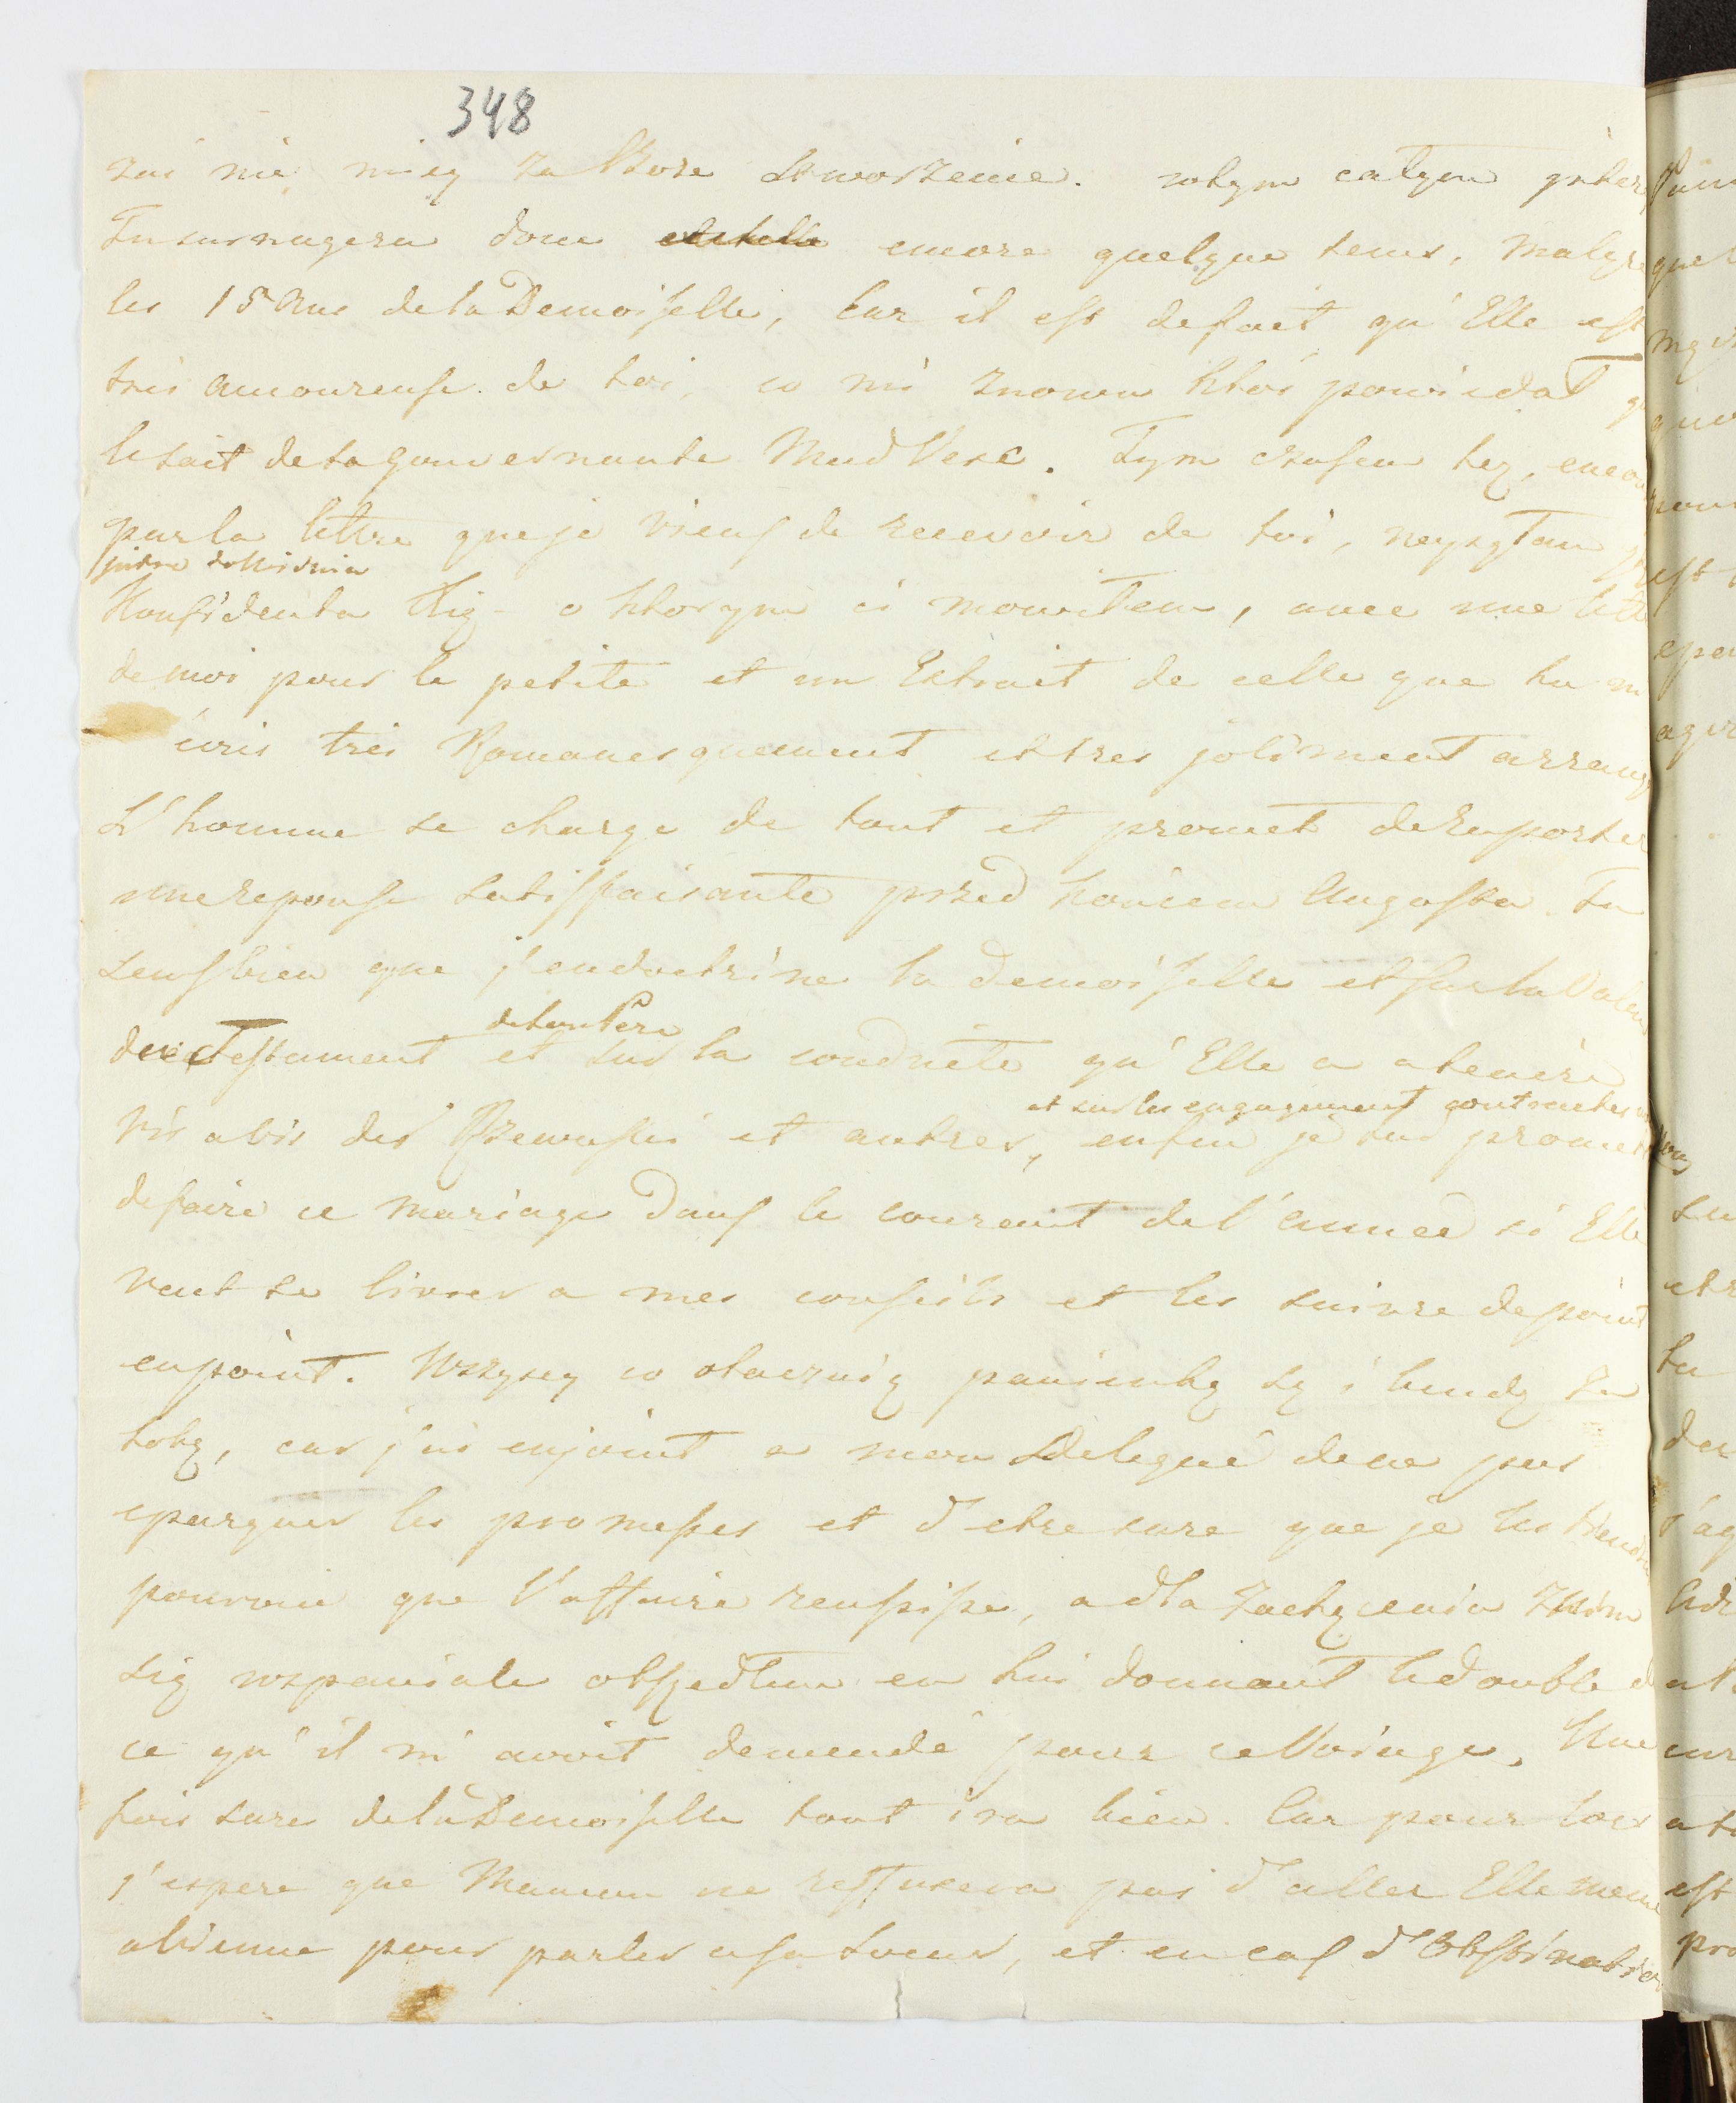 348
zas nie miey za Skore stworzenie. wtym całym inter
Tu surnagera donc encore quelque tems, malgre
les 15 Ans de la Demoiselle, Car il est defait qu'Elle est
tres amoureuse de toi, co mi znowu ktos powiedał q
le sait de sa gouvernante Mad Vese. Tym czasem tez, encou
par la lettre que je viens de recevoir de toi, neysyłam
jutro do Widnia
Konfidenta Xię o ktorym ci mowiłem, avec une lettre
de moi pour la petite et un Extrait de celle que tu m
écris tres Romanesquement et tres joliment arrangé
L'homme se charge de tout et promet de raporter
une reponse satisffaisante przed koncem Augusta. Tu
sens bien que j'endoctrine la demoiselle et sur la Valeur
de ton Pere
du Testament et sur la conduite qu'Elle a a tenire
et sur les engagement contractes
vis a vis des Rzewuski et autres, enfin je lui promet
de faire ce mariage dans le courant de l'année si Elle
veut se livrer a mes conseils et les suivre de point
en point. Wszyscy co otaczaią panienkę są i bendą za
tobą, car j'ai enjoint a mon Delegué de ne pas
epargner les promesses et d'etre sure que je les tiendrai
pourvu que l'affaire reussisse, a dla Zachęcenia
się wspaniale obszedłem en lui donnant le double d
ce qu'il m'avoit demendé pour ce Voiage. Une
fois sure de la Demoiselle tout ira bien. Car pour lors
j'espere que Maman ne reffusera pas d'aller Elle meme
a Vienne pour parler a sa soeur, et en cas d'Obstination